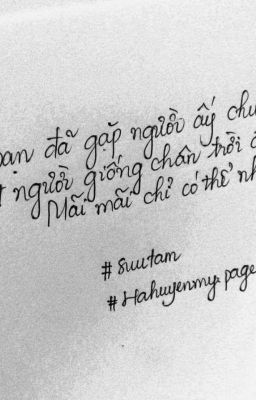 bạn đã gặp người ấy chưa
người giống chân trời
Mãi mãi chỉ có thể
# Suutam
# Hahuyenmy.page